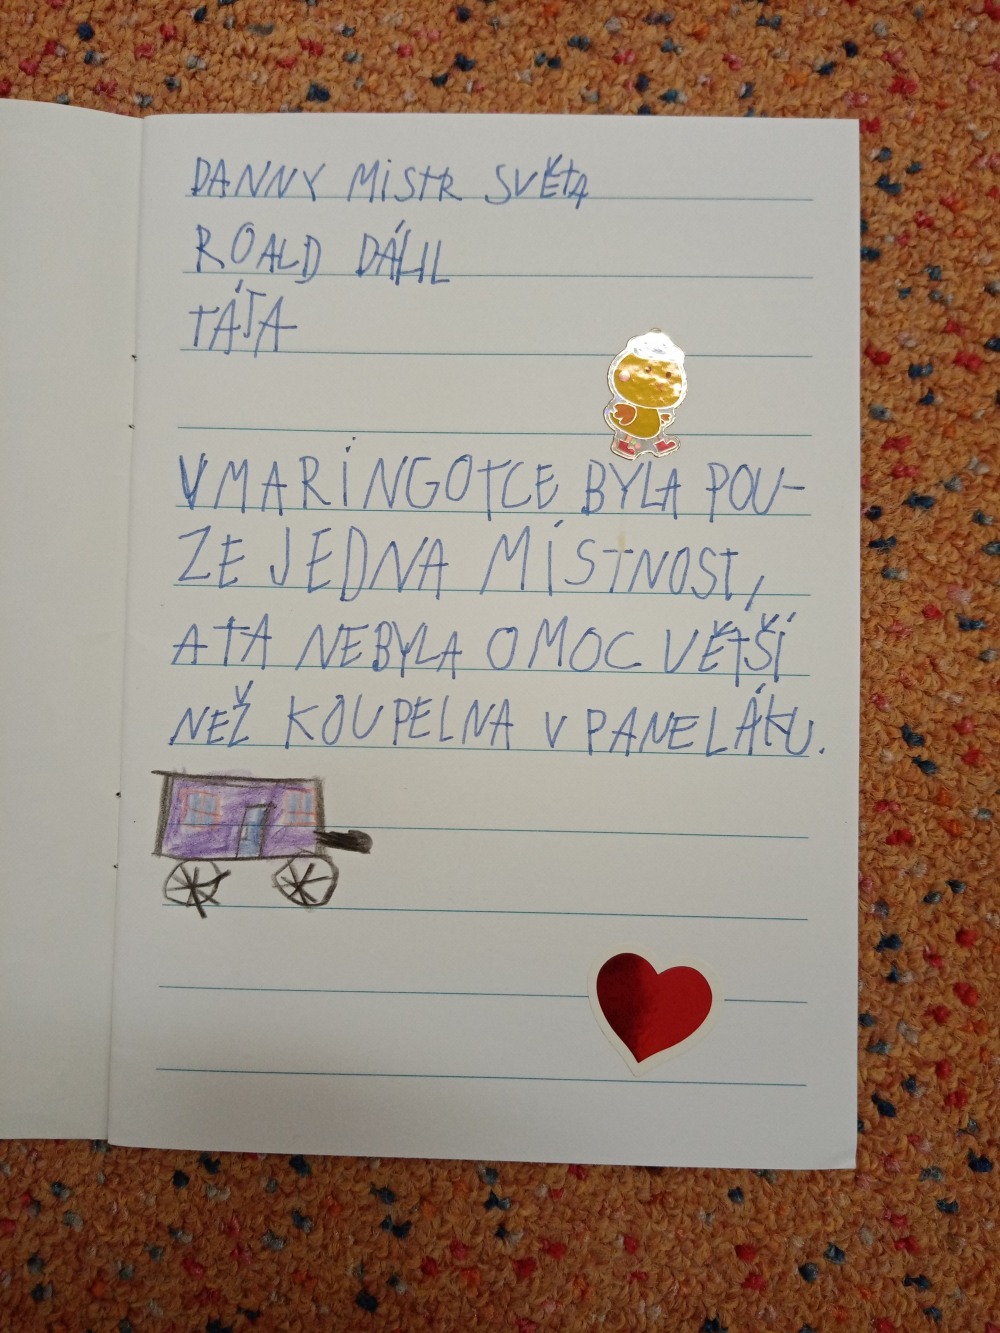 DANNY MISTR SVĚTA
ROALD DÁHL
TÁTA
V MARINGOTCE BYLA POU-
ZE JEDNA MÍSTNOST,
A TA NEBYLA O MOC VĚTŠÍ
NEŽ KOUPELNA V PANELÁKU.